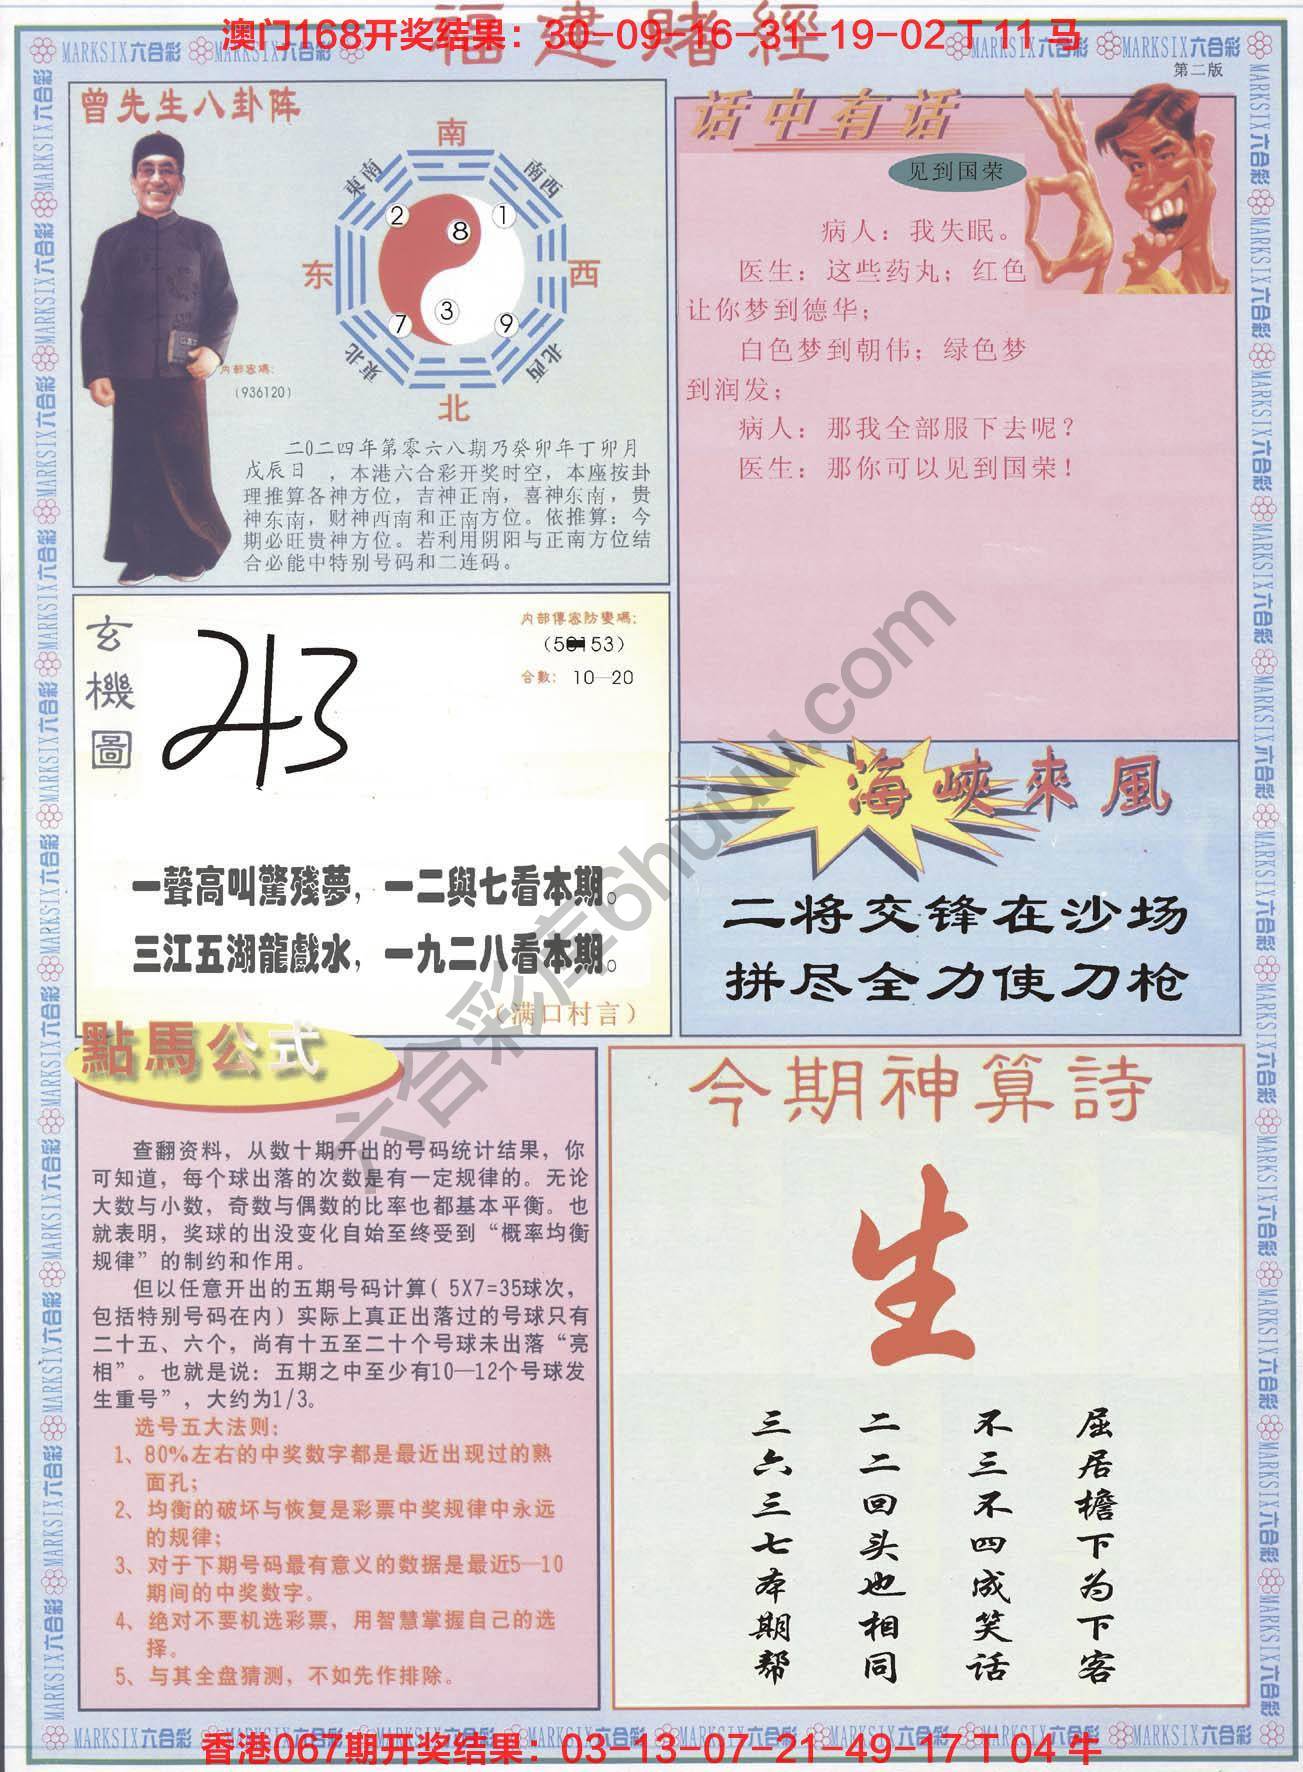 福建賭經
澳门168开奖结果：30-09-16-31-19-02 T 11 马
MARKSIX六合彩
第二版
曾先生八卦阵
南
東南
南西
2
1
8
东
西
3
7
9
東北
北西
北
内部密碼：
（936120）
二0二四年第零六八期乃癸卯年丁卯月
戊辰日 ，本港六合彩开奖时空，本座按卦
理推算各神方位，吉神正南，喜神东南，贵
神东南，财神西南和正南方位。依推算：今
期必旺贵神方位。若利用阴阳与正南方位结
合必能中特别号码和二连码。
话中有话
见到国荣
病人：我失眠。
医生：这些药丸；红色
让你梦到德华；
白色梦到朝伟；绿色梦
到润发；
病人：那我全部服下去呢？
医生：那你可以见到国荣！
玄機圖
内部傳密防變碼：
合數： 10—20
一聲高叫驚殘夢，一二與七看本期。
三江五湖龍戲水，一九二八看本期。
（满口村言）
海峽來風
二将交锋在沙场
拼尽全力使刀枪
點馬公式
查翻资料，从数十期开出的号码统计结果，你
可知道，每个球出落的次数是有一定规律的。无论
大数与小数，奇数与偶数的比率也都基本平衡。也
就表明，奖球的出没变化自始至终受到“概率均衡
规律”的制约和作用。
但以任意开出的五期号码计算( 5X7=35球次，
包括特别号码在内）实际上真正出落过的号球只有
二十五、六个，尚有十五至二十个号球未出落“亮
相”。也就是说：五期之中至少有10—12个号球发
生重号”，大约为1/3。
选号五大法则：
1、80%左右的中奖数字都是最近出现过的熟
面孔；
2、均衡的破坏与恢复是彩票中奖规律中永远
的规律；
3、对于下期号码最有意义的数据是最近5—10
期间的中奖数字。
4、绝对不要机选彩票，用智慧掌握自己的选
择。
5、与其全盘猜测，不如先作排除。
今期神算詩
生
屈居檐下为下客
不三不四成笑话
二二回头也相同
三六三七本期帮
六合彩库6huuu.com
香港067期开奖结果：03-13-07-21-49-17 T 04 牛